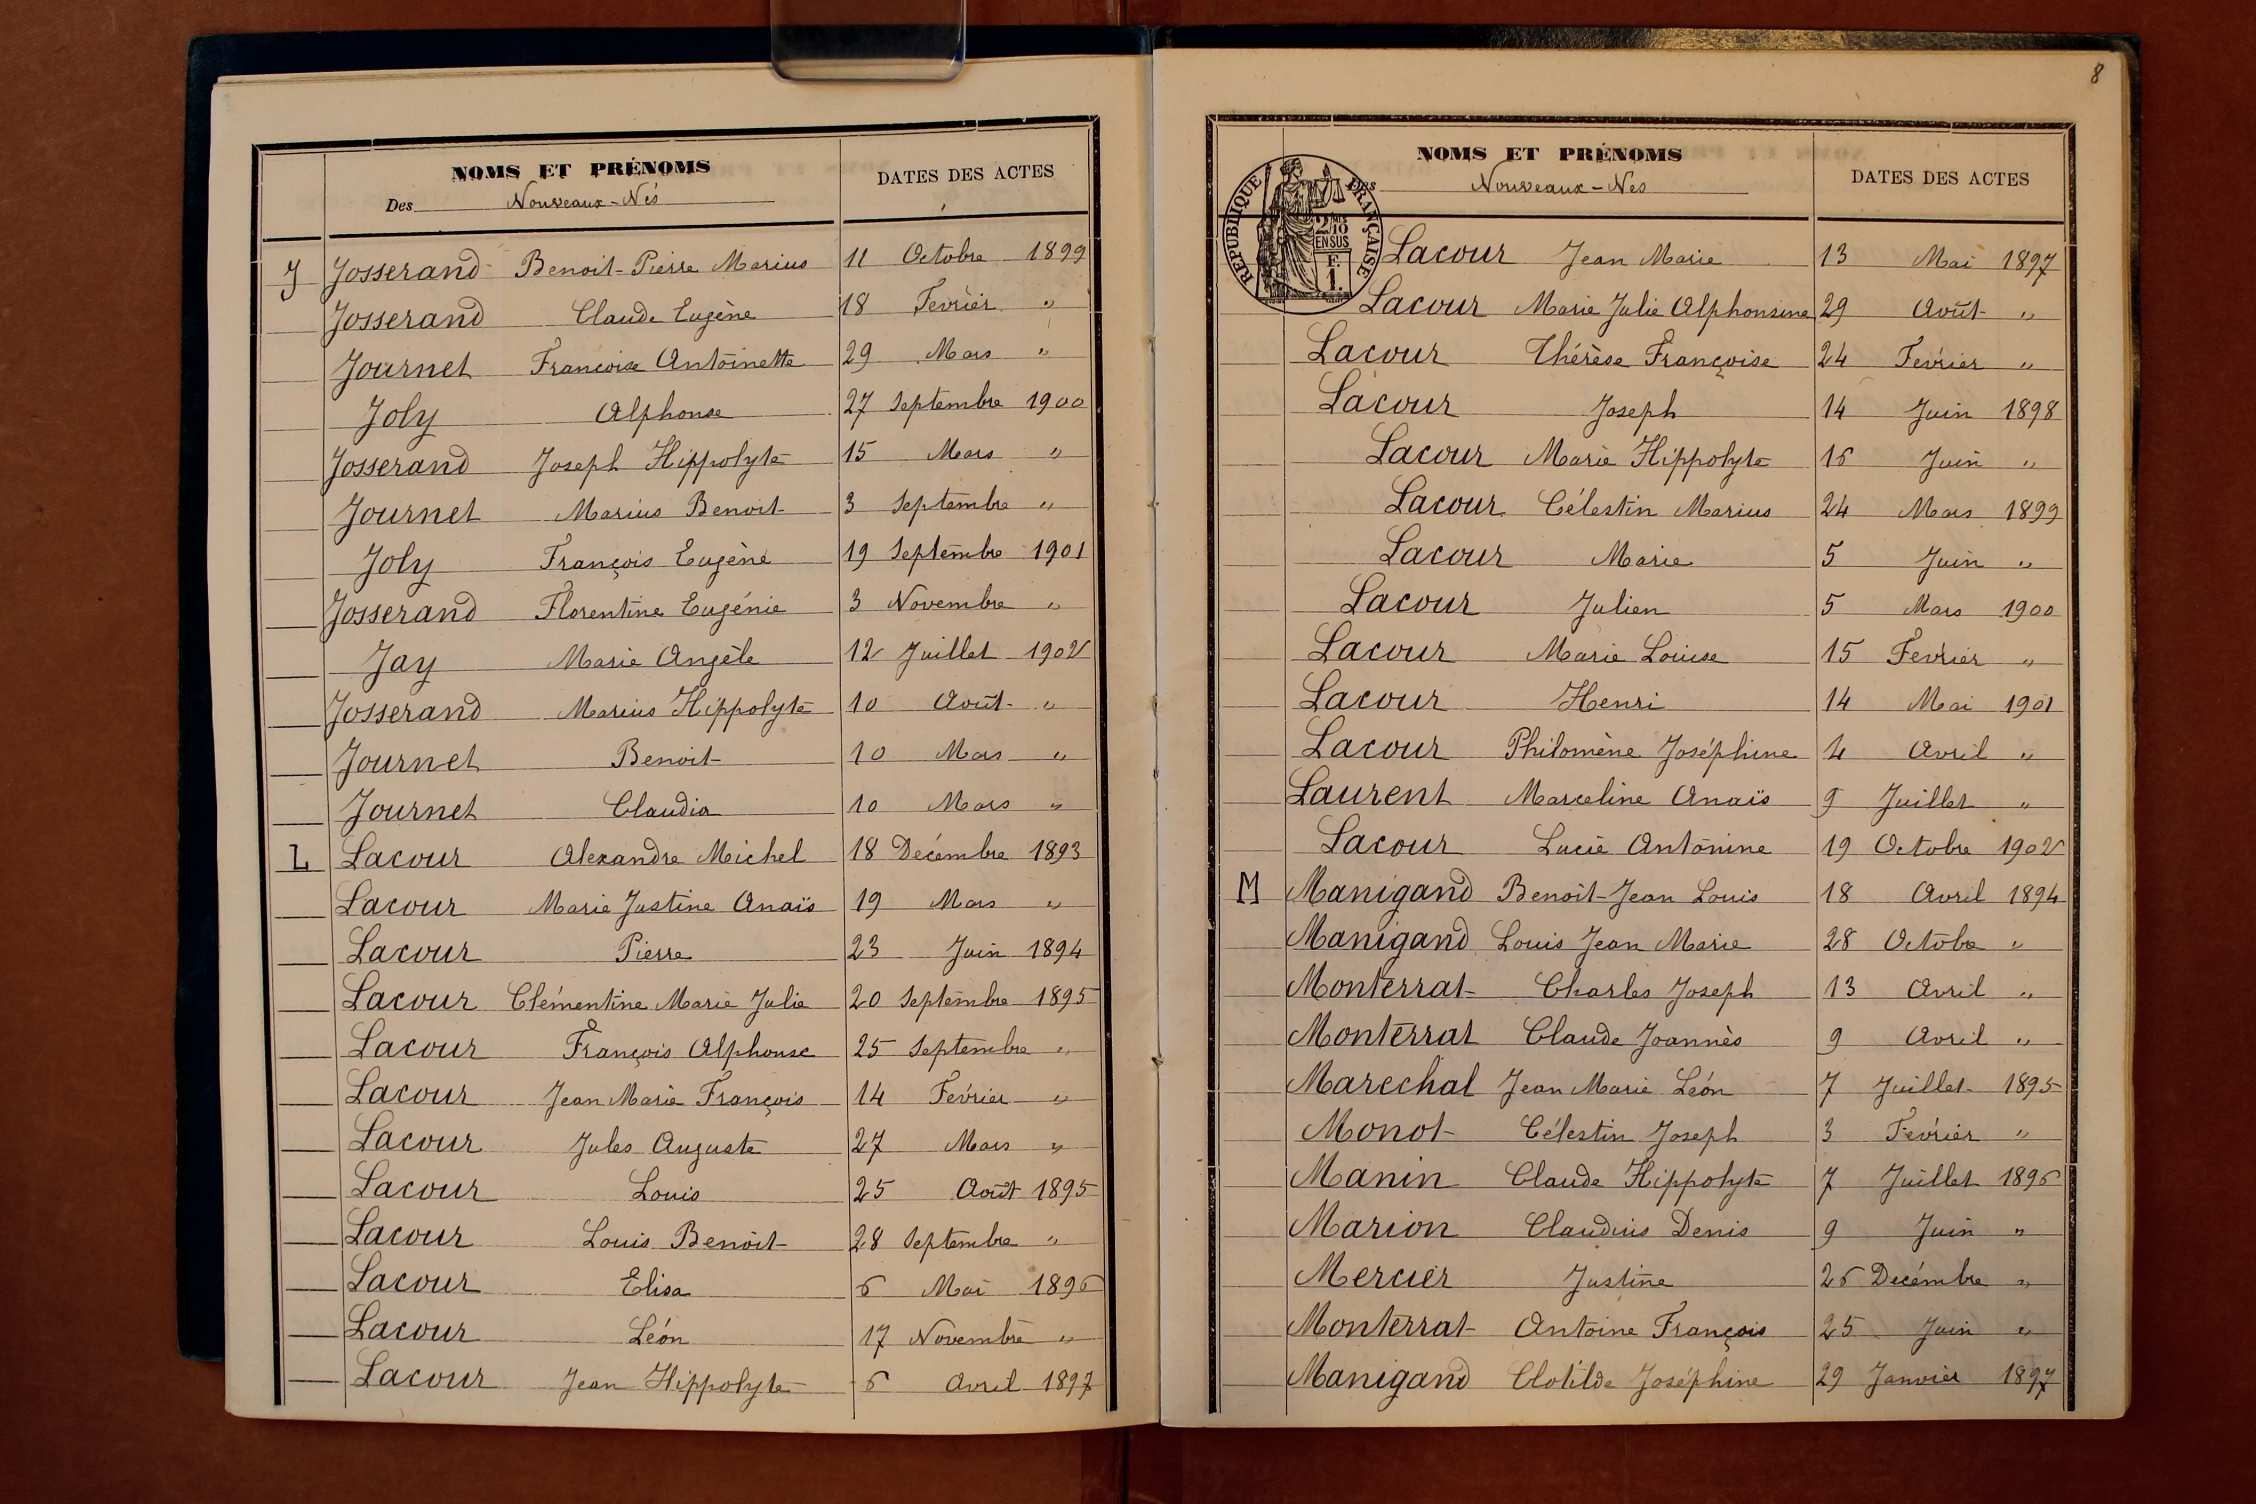 NOMS ET PRÉNOMS
DATES DES ACTES
Des Nouveaux-Nés
J Josserand Benoit-Pierre Marius 11 Octobre 1899
Josserand Claude Eugène 18 Fevrier "
Journet Francoise Antoinette 29 Mars "
Joly Alphonse 27 Septembre 1900
Josserand Joseph Hippolyte 15 Mars "
Journet Marius Benoit 3 Septembre "
Joly François Eugène 19 Septembre 1901
Josserand Florentine Eugénie 3 Novembre "
Jay Marie Angèle 12 Juillet 1902
Josserand Marius Hippolyte 10 Août "
Journet Benoit 10 Mars "
Journet Claudia 10 Mars "
L Lacour Alexandre Michel 18 Decémbre 1893
Lacour Marie Justine Anaïs 19 Mars "
Lacour Pierre 23 Juin 1894
Lacour Clémentine Marie Julie 20 Septembre 1895
Lacour François Alphonse 25 Septembre "
Lacour Jean Marie François 14 Fevrier "
Lacour Jules Auguste 27 Mars "
Lacour Louis 25 Août 1895
Lacour Louis Benoit 28 Septembre "
Lacour Elisa 6 Mai 1896
Lacour Léon 17 Novembre "
Lacour Jean Hippolyte 6 Avril 1897
8
NOMS ET PRÉNOMS
DATES DES ACTES
Des Nouveaux-Nes
RÉPUBLIQUE FRANÇAISE
2/10 EN SUS
F. 1.
Lacour Jean Marie 13 Mai 1897
Lacour Marie Julie Alphonsine 29 Août "
Lacour Thérèse Françoise 24 Fevrier "
Lacour Joseph 14 Juin 1898
Lacour Marie Hippolyte 16 Juin "
Lacour Célestin Marius 24 Mars 1899
Lacour Marie 5 Juin "
Lacour Julien 5 Mars 1900
Lacour Marie Louise 15 Fevrier "
Lacour Henri 14 Mai 1901
Lacour Philomène Joséphine 4 Avril "
Laurent Marceline Anaïs 9 Juillet "
Lacour Lucie Antonine 19 Octobre 1902
M Manigand Benoît-Jean Louis 18 Avril 1894
Manigand Louis Jean Marie 28 Octobre "
Monterrat Charles Joseph 13 Avril "
Monterrat Claude Joannès 9 Avril "
Marechal Jean Marie Léon 7 Juillet 1895
Monot Célestin Joseph 3 Fevrier "
Manin Claude Hippolyte 7 Juillet 1896
Marion Claudius Denis 9 Juin "
Mercier Justine 26 Decémbre "
Monterrat Antoine François 25 Juin "
Manigand Clotilde Joséphine 29 Janvier 1897